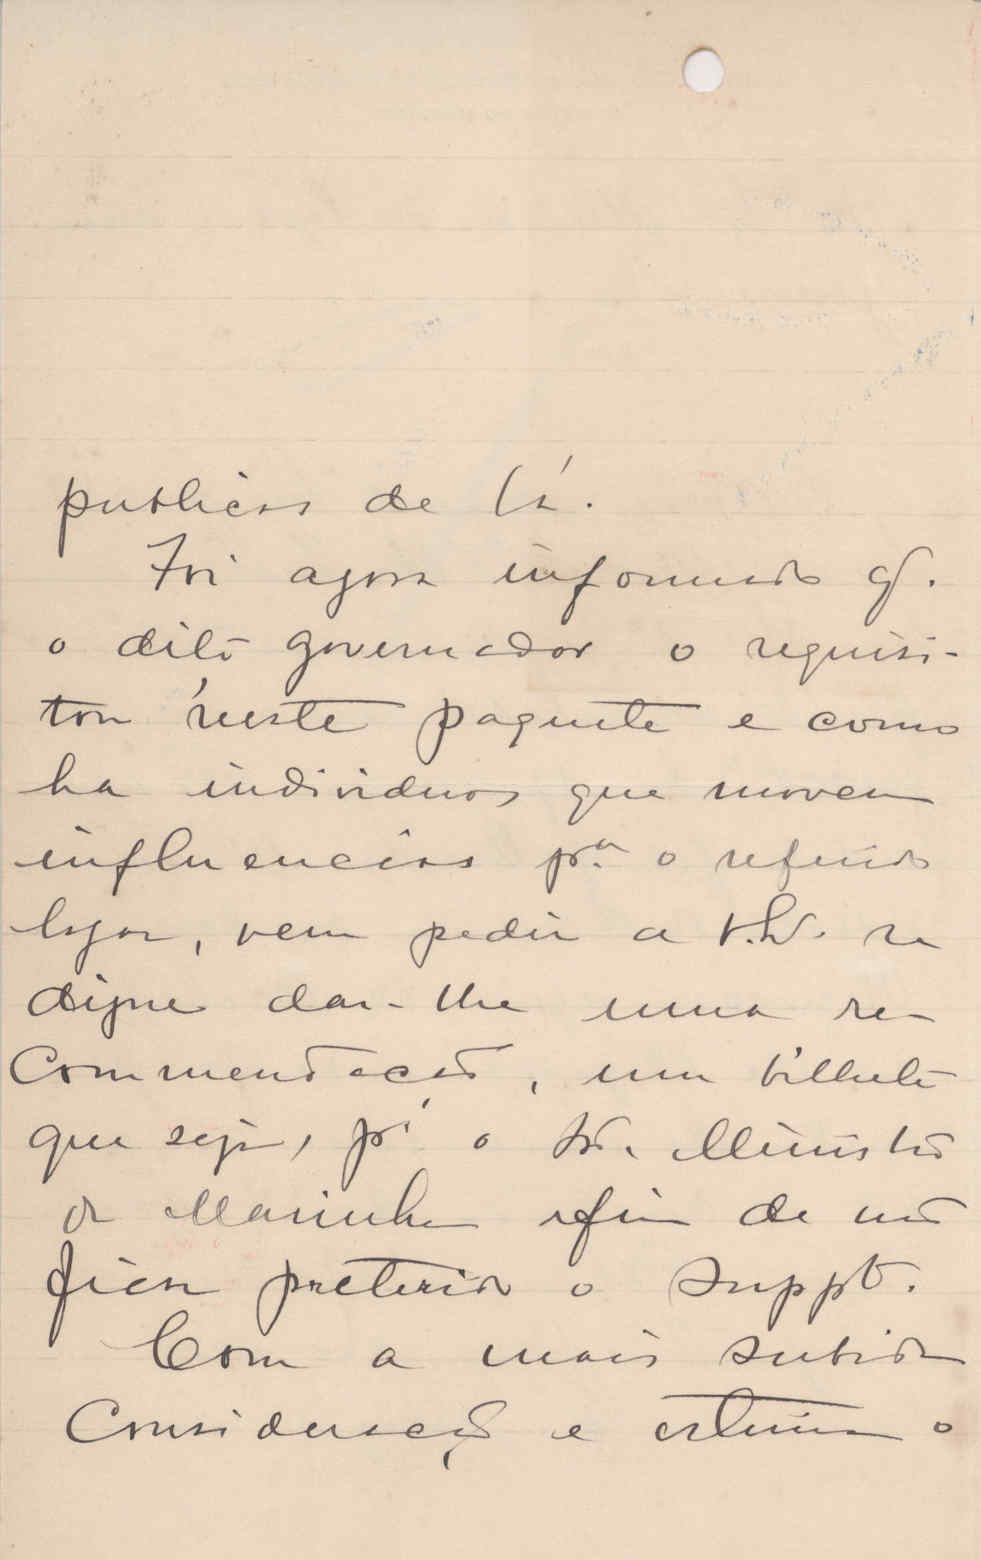 publicas de lá.
Foi agora informado q.
o dito governador o requisi-
tou n'este paquete e como
ha individuos que movem
influencias p.ª o referido
logar, vem pedir a V. Ex. se
digne dar-lhe uma re-
commendação, um bilhete
que seja, p.ª o Sr. Ministro
da Marinha afim de não
ficar preterido o suppt.
Com a mais subida
consideração e estima o